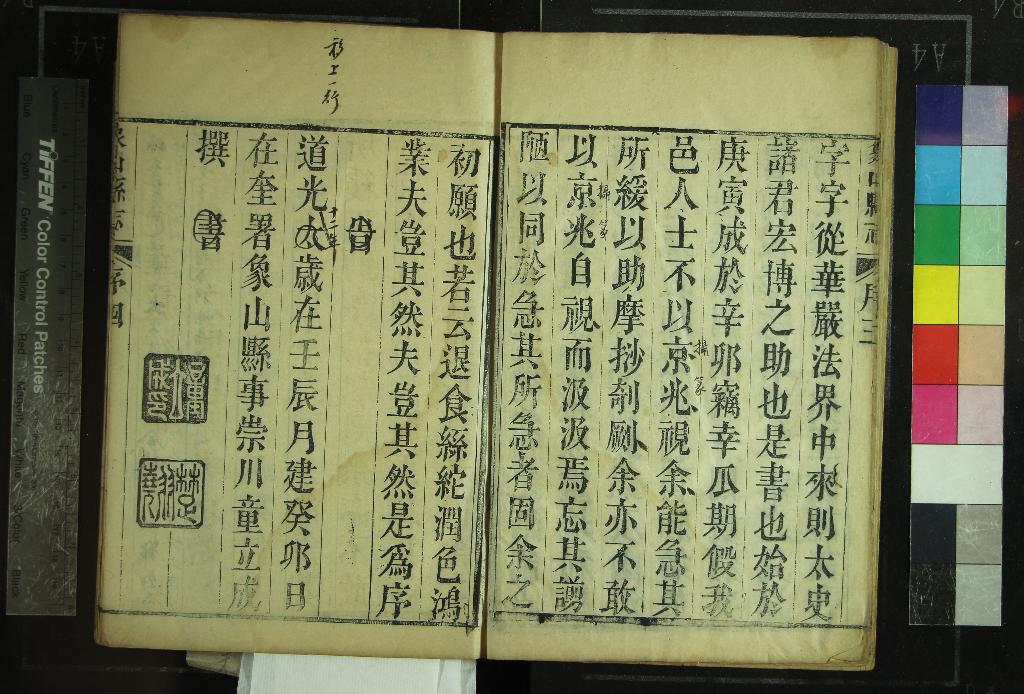 字字從華嚴法界中來則太史
諸君宏博之助也是書也始於
庚寅成於辛夘竊幸瓜期假我
邑人士不以京兆視余能急其
所緩以助摩抄剞劂余亦不敢
以京兆自視而汲汲焉忘其謭
陋以同於急其所急者固余之
序三
初願也若云退食絲綻潤色鴻
業夫豈其然夫豈其然是爲序
移上一行
道光太歲在壬辰月建癸夘日
十二年
在奎署象山縣事崇川童立成
撰
書
象山縣志
序四
TIFFEN Color Control Patches
Blue
Cyan
Green
Yellow
Red
Magenta
White
3/Color
Black
A4
A4